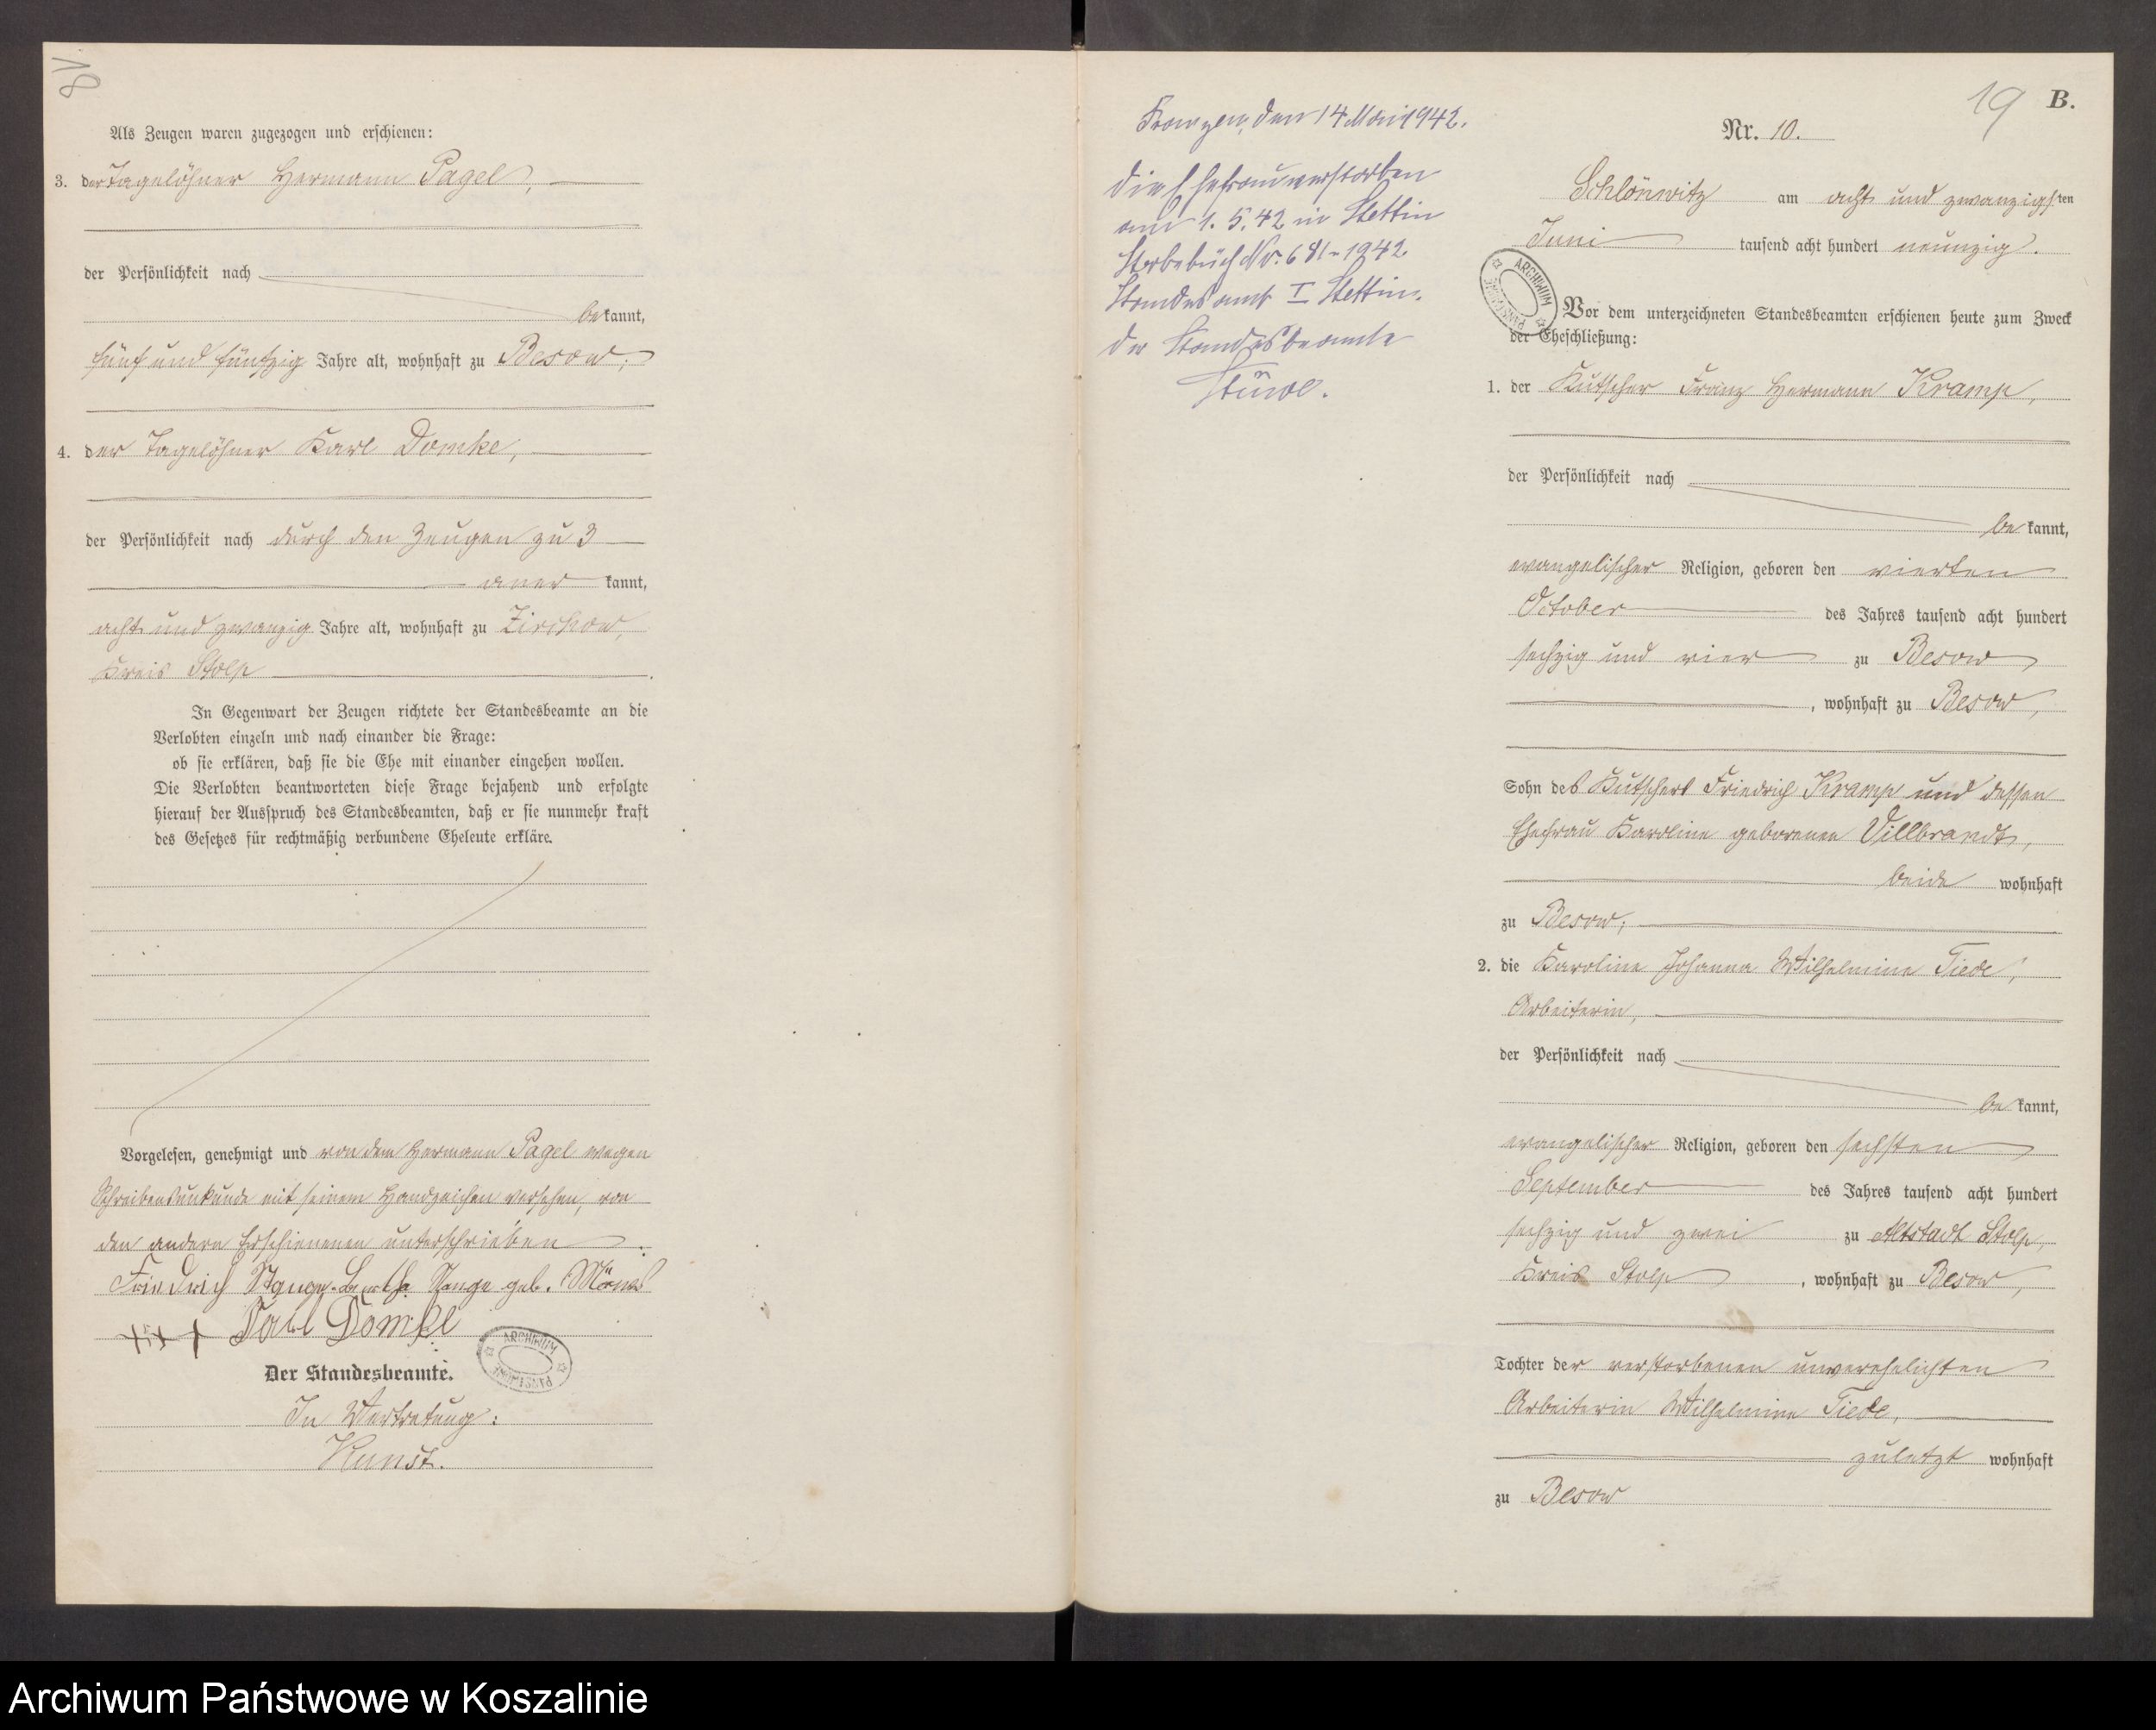 18
Als Zeugen waren zugezogen und erschienen:
3. der Tagelöhner Hermann Pagel,
der Persönlichkeit nach
be kannt,
fünf und fünfzig Jahre alt, wohnhaft zu Besow;
4. der Tagelöhner Karl Domke,
der Persönlichkeit nach durch den Zeugen zu 3
aner kannt,
acht und zwanzig Jahre alt, wohnhaft zu Zirchow,
Kreis Stolp.
In Gegenwart der Zeugen richtete der Standesbeamte an die
Verlobten einzeln und nach einander die Frage:
ob sie erklären, daß sie die Ehe mit einander eingehen wollen.
Die Verlobten beantworteten diese Frage bejahend und erfolgte
hierauf der Ausspruch des Standesbeamten, daß er sie nunmehr kraft
des Gesetzes für rechtmäßig verbundene Eheleute erkläre.
Vorgelesen, genehmigt und von dem Hermann Pagel wegen
Schreibensunkunde mit seinem Handzeichen versehen, von
den andern Erschienenen unterschrieben.
Friedrich Stange. Bertha Stange geb.
+++ Karl Domke
Der Standesbeamte.
In Vertretung:
Kunst.
ARCHIWUM PAŃSTWOWE
Krangen, den 14 Mai 1942.
Die Ehefrau verstorben
am 1. 5. 42 in Stettin
Sterbebuch Nr. 681-1942
Standesamt I Stettin.
Der Standesbeamte
19 B.
Nr. 10.
Schlönwitz am acht und zwanzigsten
Juni tausend acht hundert neunzig.
ARCHIWUM PAŃSTWOWE
Vor dem unterzeichneten Standesbeamten erschienen heute zum Zweck
der Eheschließung:
1. der Kutscher Franz Hermann Kramp,
der Persönlichkeit nach
be kannt,
evangelischer Religion, geboren den vierten
October des Jahres tausend acht hundert
sechzig und vier zu Besow
, wohnhaft zu Besow,
Sohn des Kutschers Friedrich Kramp und dessen
Ehefrau Karoline geborenen Villbrandt,
beide wohnhaft
zu Besow;
2. die Karoline Johanna Wilhelmine Tiede,
Arbeiterin,
der Persönlichkeit nach
be kannt,
evangelischer Religion, geboren den sechsten
September des Jahres tausend acht hundert
sechzig und zwei zu Altstadt Stolp,
Kreis Stolp, wohnhaft zu Besow,
Tochter der verstorbenen unverehelichten
Arbeiterin Wilhelmine Tiede,
zuletzt wohnhaft
zu Besow
Archiwum Państwowe w Koszalinie